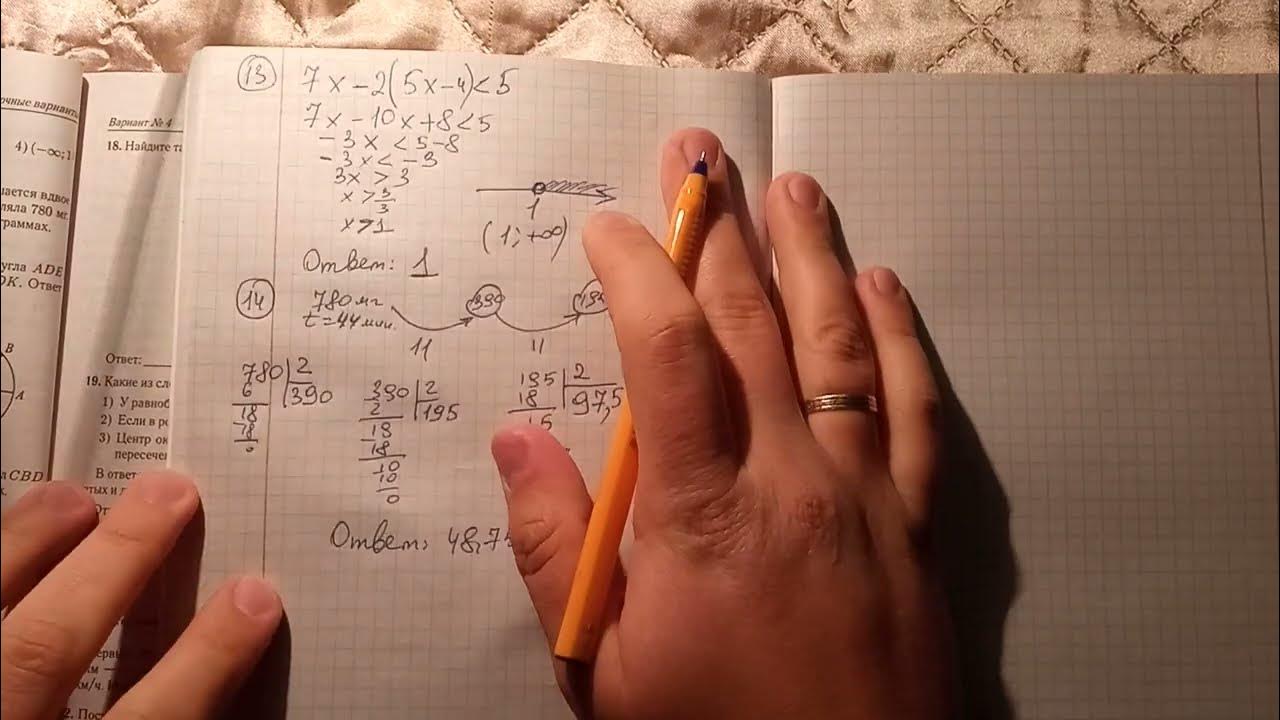 очные варианты
4) (−∞; 1
ается вдвое
ляла 780 мг.
граммах.
угла ADE
DK. Ответ
B
A
CBD
Вариант № 4
18. Найдите
Ответ:
19. Какие из
1) У
2) Если в
3) Центр
пересечен
В
км
км/ч.
13
7x − 2(5x − 4) < 5
7x − 10x + 8 < 5
− 3x < 5 − 8
− 3x < − 3
3x > 3
x > 3/3
x > 1
1
(1; +∞)
Ответ: 1
14
780 мг
390
t = 44 мин.
11
11
780 2
6 390
18
18
0
390 2
2 195
18
18
10
10
0
195 2
18 97,5
15
Ответ: 48,75